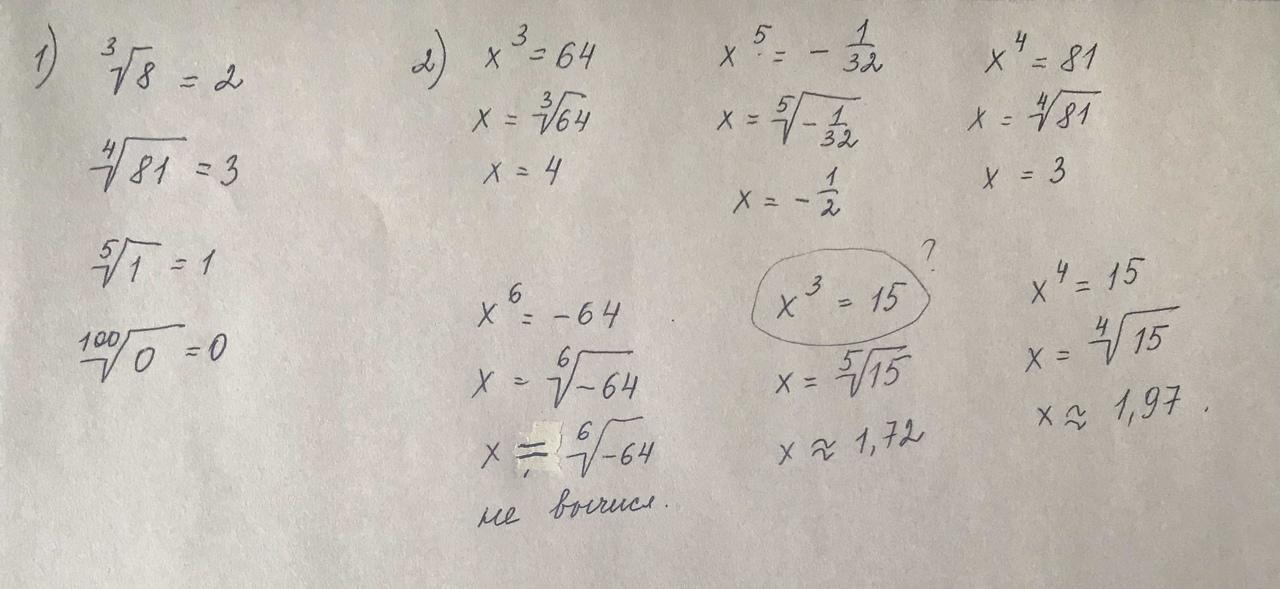 1) ³√8 = 2
⁴√81 = 3
⁵√1 = 1
¹⁰⁰√0 = 0
2) x³ = 64
x = ³√64
x = 4
x⁵ = - 1/32
x = ⁵√(- 1/32)
x = - 1/2
x⁴ = 81
x = ⁴√81
x = 3
x⁶ = -64
x = ⁶√-64
x = ⁶√-64
не вычисл.
x³ = 15 ?
x = ⁵√15
x ≈ 1,72
x⁴ = 15
x = ⁴√15
x ≈ 1,97.